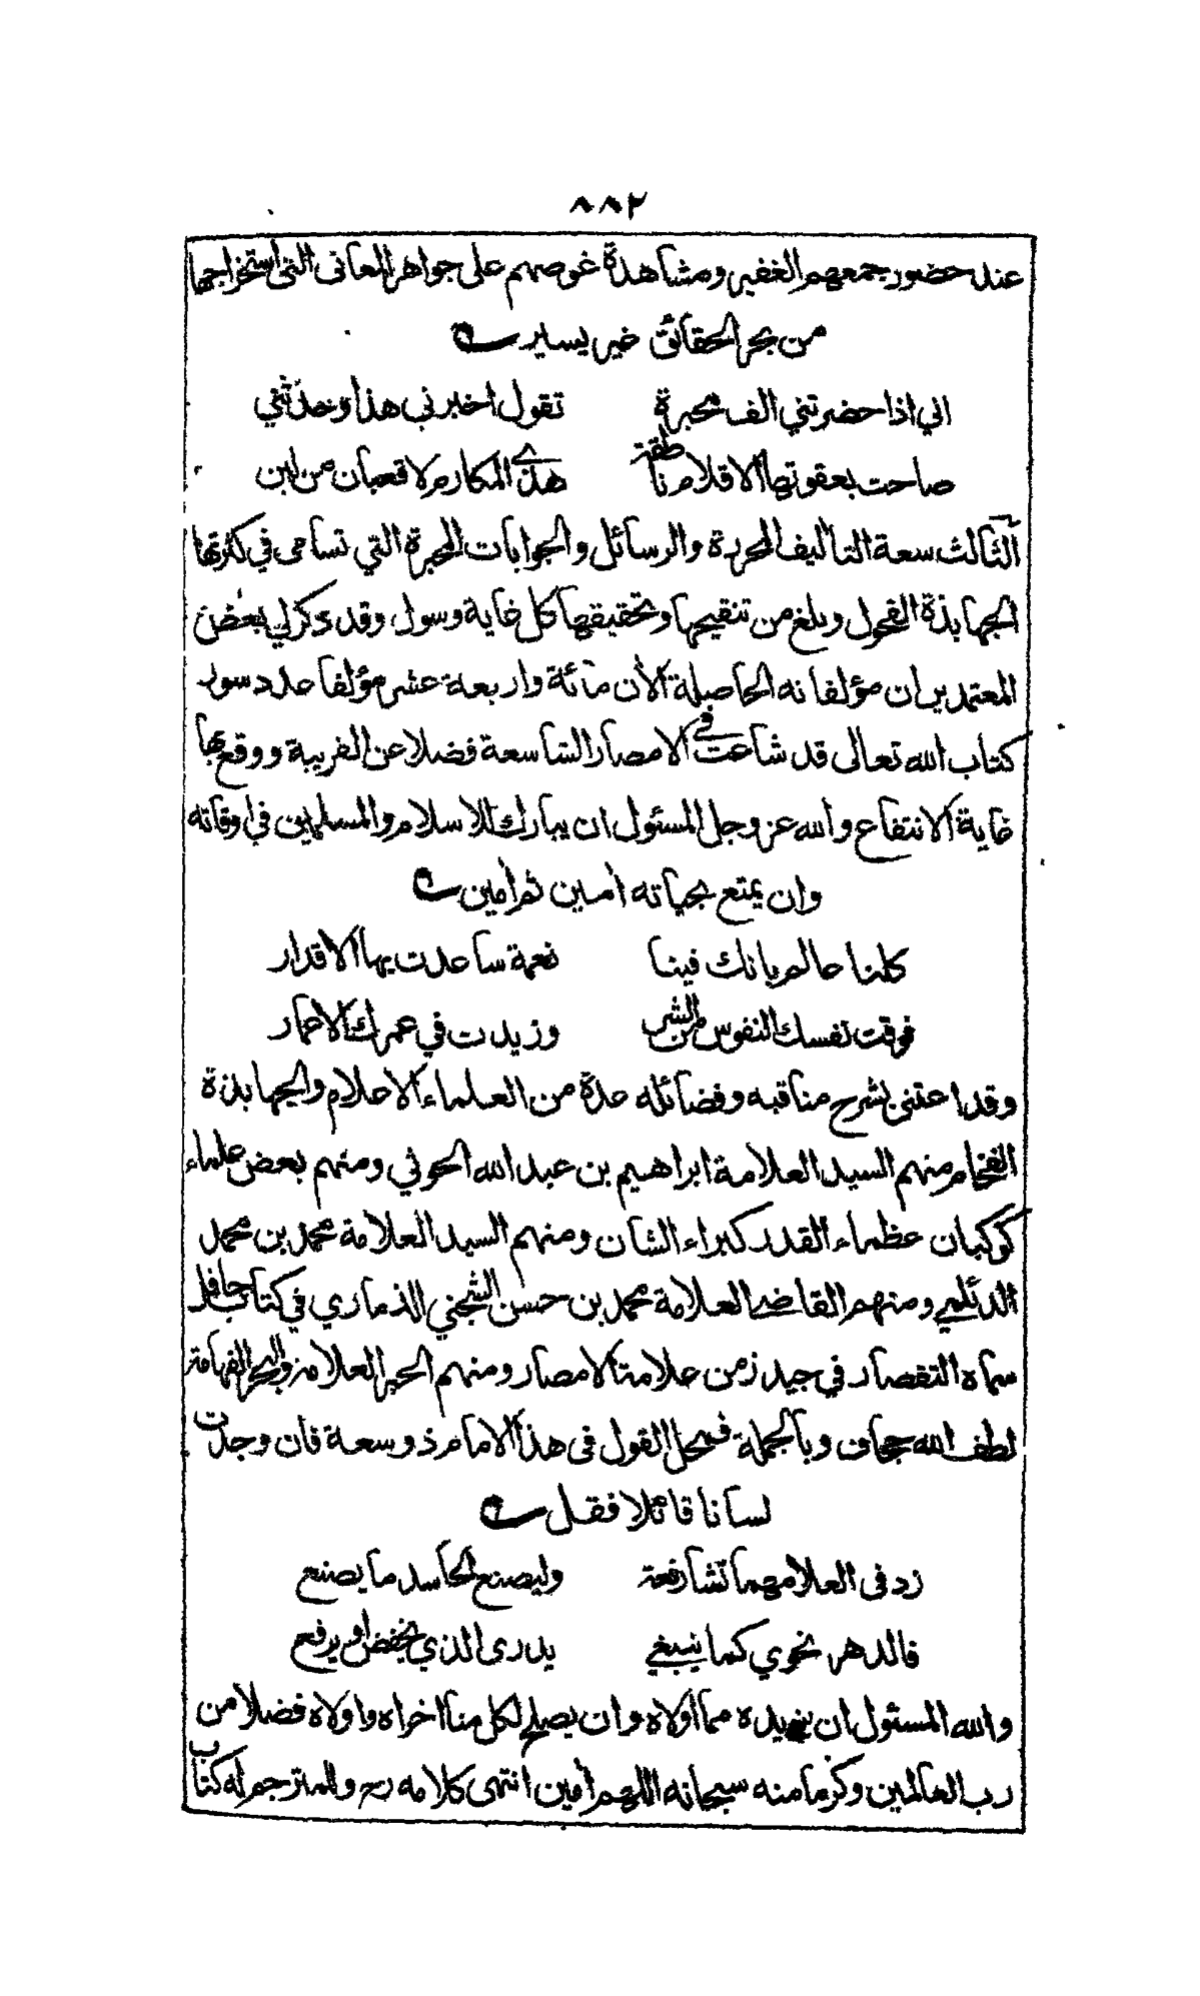 ٨٨٢
عند حضور جمعهم الغفير ومشاهدة غوصهم على جواهر المعاني التي استخراجها
من بحر الحقائق غير يسير
اني اذا حضرتني الف محبرة تقول اخبرني هذا وحدثني
صاحت بعقوتها الاقلام ناطقة هذي المكارم لا قعبان من لبن
الثالث سعة التأليف المحررة والرسائل والجوابات المحبرة التي تسامى في كثرتها
الجهابذة الفحول وبلغ من تنقيحها وتحقيقها كل غاية وسول وقد ذكر لي بعض
المعتمدين ان مؤلفاته الحاصلة الآن مائة واربعة عشر مؤلفا عدد سور
كتاب الله تعالى قد شاعت في الامصار الشاسعة فضلا عن القريبة ووقع بها
غاية الانتفاع والله عز وجل المسئول ان يبارك للاسلام والمسلمين في اوقاته
وان يمتع بحياته امين ثم امين
كلنا عالم بانك فينا نعمة ساعدت بها الاقدار
فوقت نفسك النفوس من الشر وزيدت في عمرك الاعمار
وقد اعتنى بشرح مناقبه وفضائله عدة من العلماء الاعلام والجهابذة
الفخام منهم السيد العلامة ابراهيم بن عبد الله الحوثي ومنهم بعض علماء
كوكبان عظماء القدر كبراء الشان ومنهم السيد العلامة محمد بن محمد
الديلمي ومنهم القاضي العلامة محمد بن حسن الشجني الذماري في كتاب حافل
سماه التقصار في جيد زمن علامة الامصار ومنهم الحبر العلامة والبحر الفهامة
لطف الله جحاف وبالجملة فمحل القول في هذا الامام ذو سعة فان وجدت
لسانا قائلا فقل
زد في العلا مهما تشا رفعة وليصنع الحاسد ما يصنع
فالدهر نحوي كما ينبغي يدرى الذي يخفض او يرفع
والله المسئول ان يزيده مما اولاه وان يصلح لكل منا اخراه واولاه فضلا من
رب العالمين وكرما منه سبحانه اللهم امين انتهى كلامه رح وللمترجم له كتاب